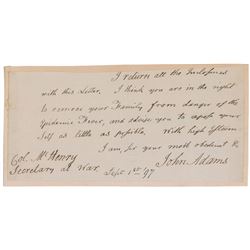 I return all the Inclosures
with this Letter. I think you are in the right
to remove your Family from danger of the
Epidemic Fever, and advise you to expose your
self as little as possible. With high Esteem
I am, Sir your most obedient
Col. McHenry John Adams
Secretary at War. Sept. 1st 97